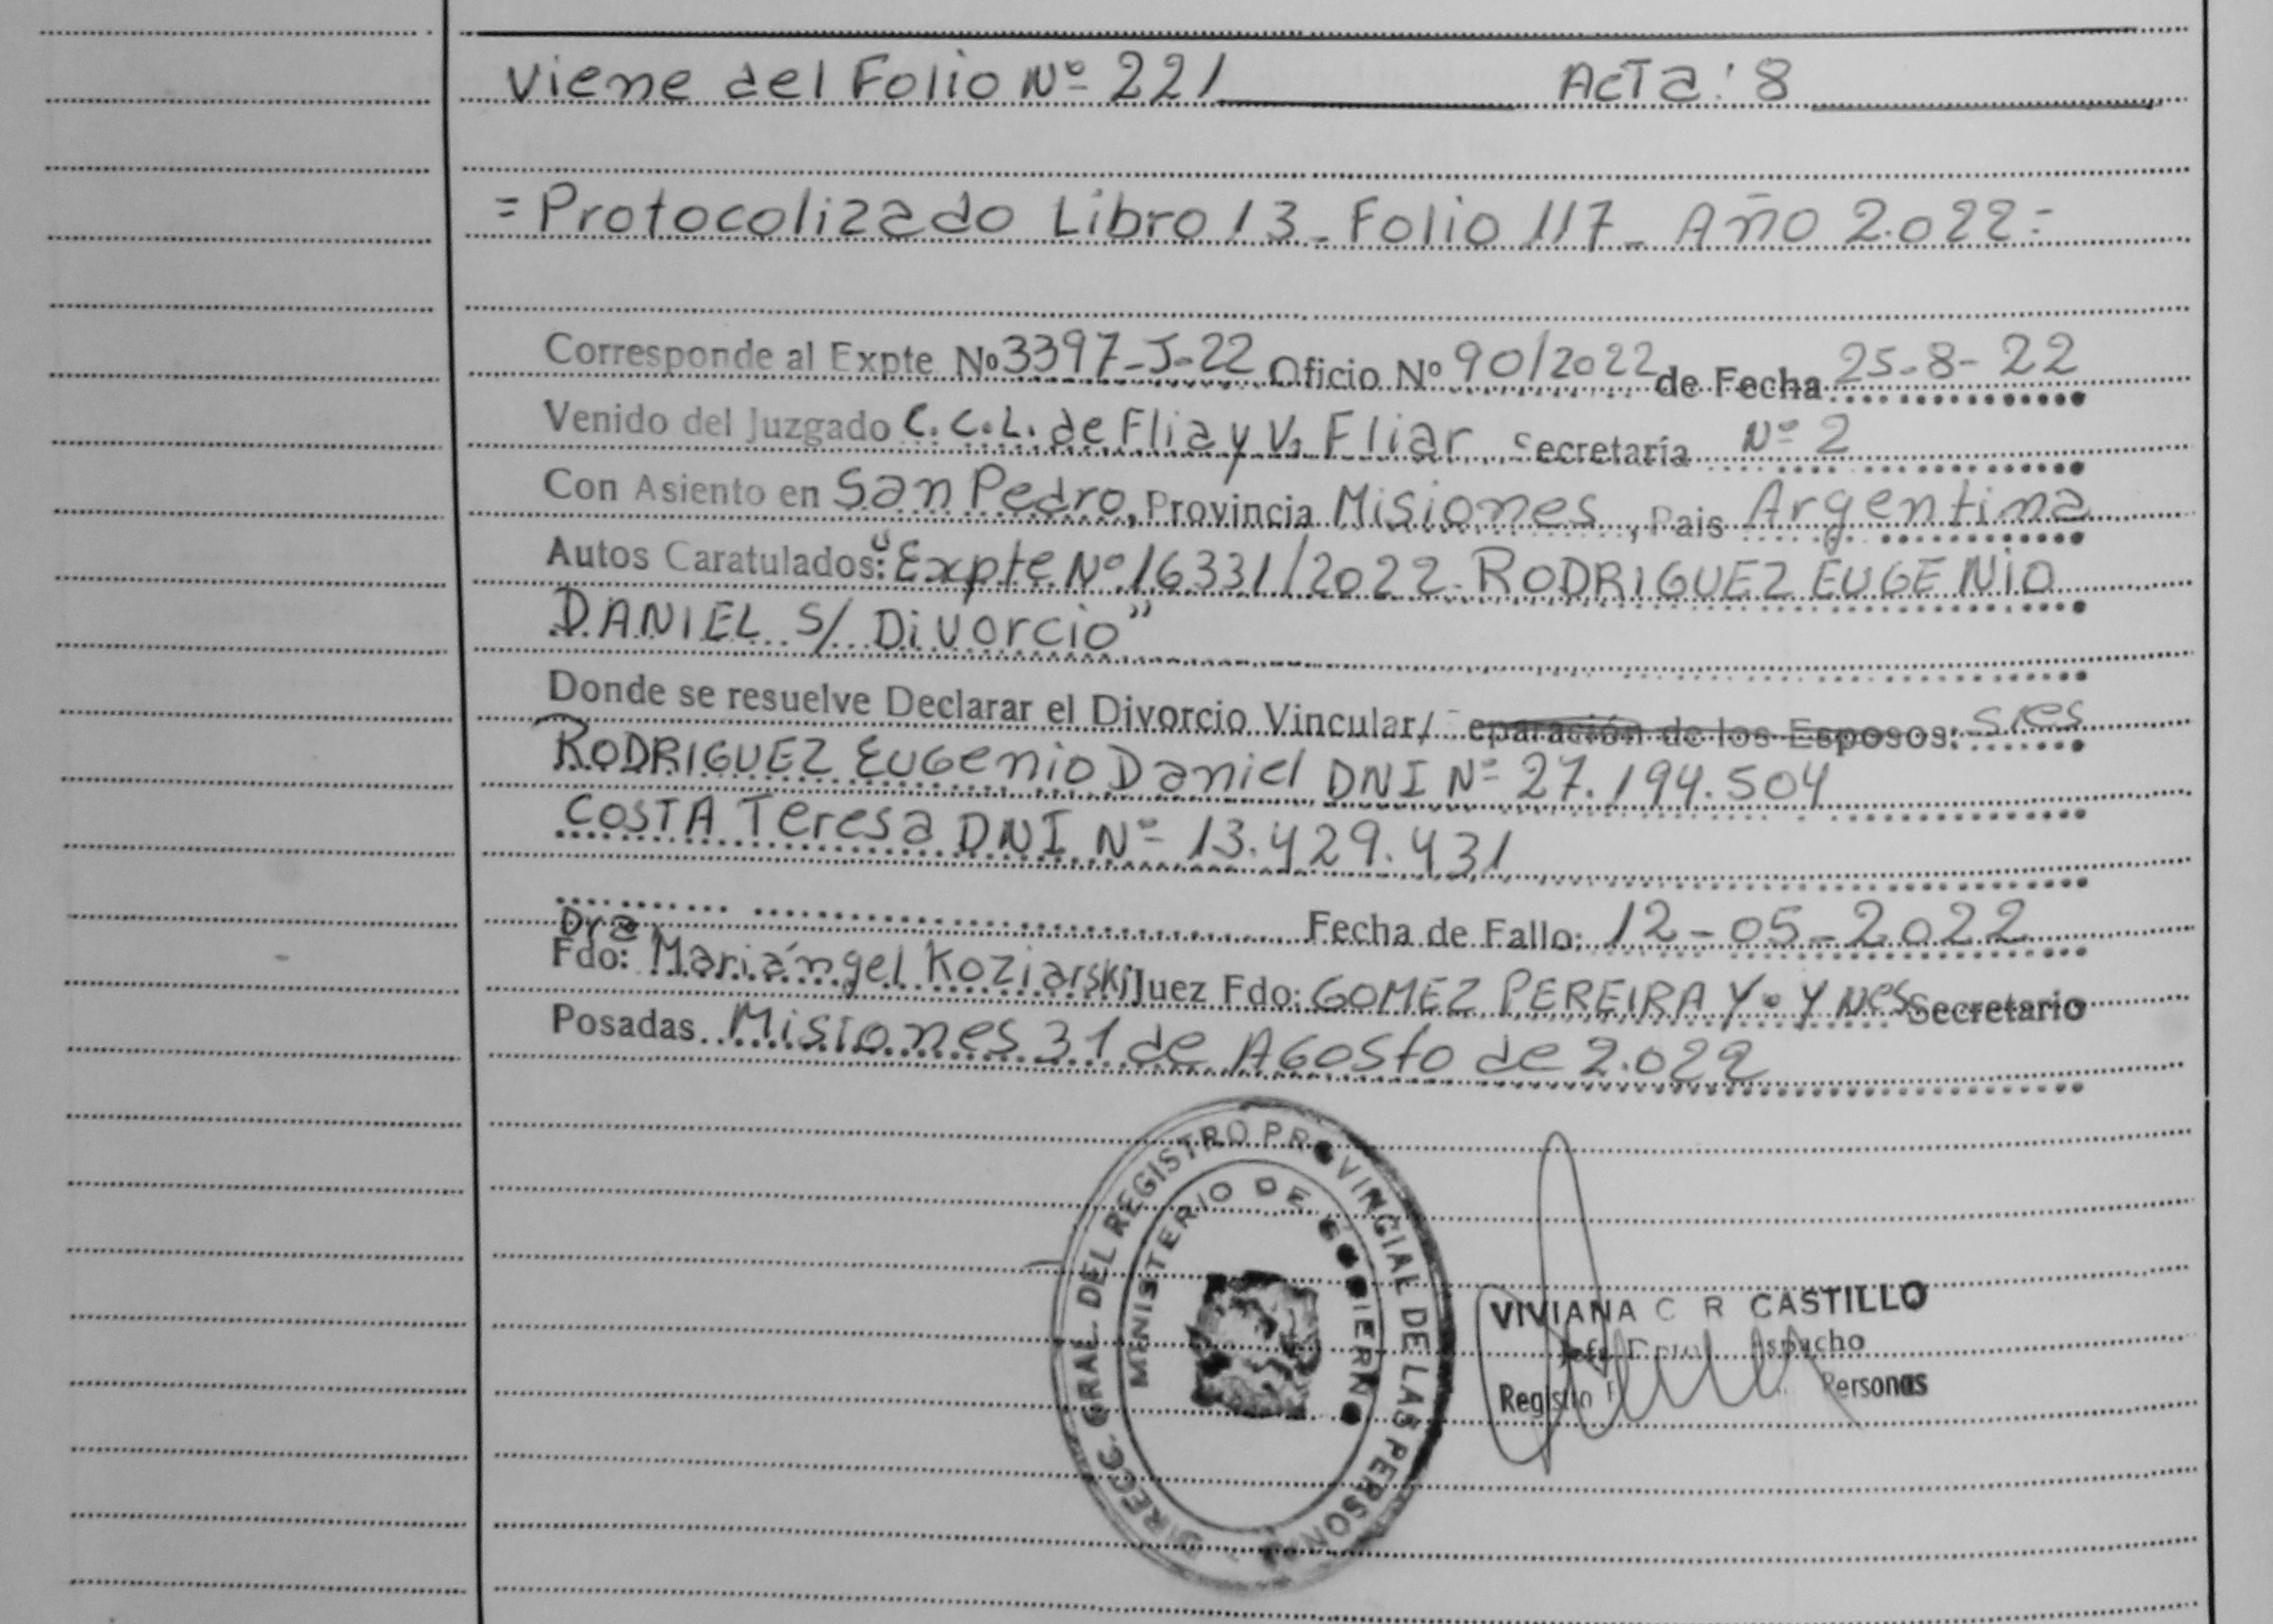 Viene del Folio Nº 221 Acta: 8
= Protocolizado Libro 13 - Folio 117 - Año 2.022 =
Corresponde al Expte Nº 3397-J-22 Oficio Nº 90/2022 de Fecha 25-8-22
Venido del Juzgado C.C.L. de Flia y V. Fliar Secretaría Nº 2
Con Asiento en San Pedro, Provincia Misiones, Pais Argentina
Autos Caratulados: "Expte Nº 16331/2022. RODRIGUEZ EUGENIO
DANIEL S/ Divorcio"
Donde se resuelve Declarar el Divorcio Vincular/ eparación de los Esposos: sres
RODRIGUEZ EUGenio Daniel DNI Nº 27.194.504
COSTA Teresa DNI Nº 13.429.431
Fecha de Fallo: 12-05-2022
Dra
Fdo: Mariángel Koziarski Juez Fdo: GOMEZ PEREIRA Y. Ynes Secretario
Posadas Misiones 31 de AGOSTO de 2.022
DIRECC. GRAL. DEL REGISTRO PROVINCIAL DE LAS PERSONAS
MINISTERIO DE GOBIERNO
VIVIANA C R CASTILLO
Jefe
Registro Personas